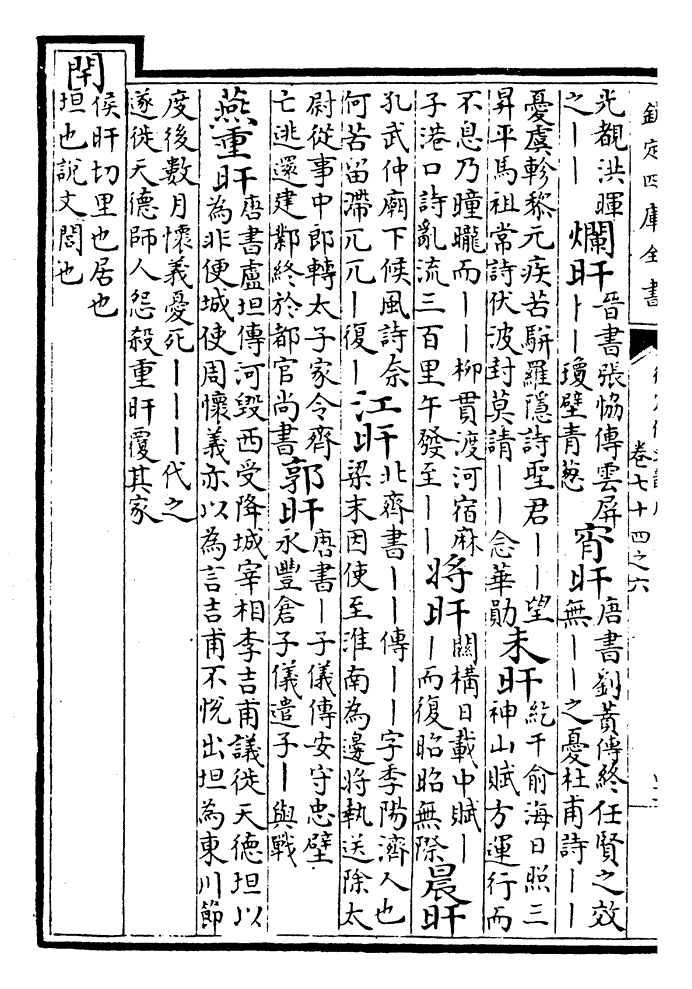 欽定四庫全書
卷七十四之六
光覩洪暉
之丨丨
爛旰
晉書張協傳雲屏
丨丨瓊壁青葱
宵旰
唐書劉蕡傳終任賢之效
無丨丨之憂杜甫詩丨丨
憂虞軫黎元疾苦駢羅隱詩聖君丨丨望
昇平馬祖常詩伏波封莫請丨丨念華勛
未旰
紇干俞海日照三
神山賦方運行而
不息乃曈曨而丨丨柳貫渡河宿麻
子港口詩亂流三百里午發至丨丨
將旰
闕構日載中賦丨
丨而復昭昭無際
晨旰
孔武仲廟下候風詩奈
何苦留滯兀兀丨復丨
江旰
北齊書丨丨傳丨丨字季陽濟人也
梁末因使至淮南為邊將執送除太
尉從事中郎轉太子家令齊
亡逃還建鄴終於都官尚書
郭旰
唐書丨子儀傳安守忠壁
永豐倉子儀遣子丨與戰
燕重旰
唐書盧坦傳河毀西受降城宰相李吉甫議徙天德坦以
為非便城使周懷義亦以為言吉甫不悅出坦為東川節
度後數月懷義憂死丨丨丨代之
遂徙天德師人怨殺重旰覆其家
閈
侯旰切里也居也
垣也說文閭也